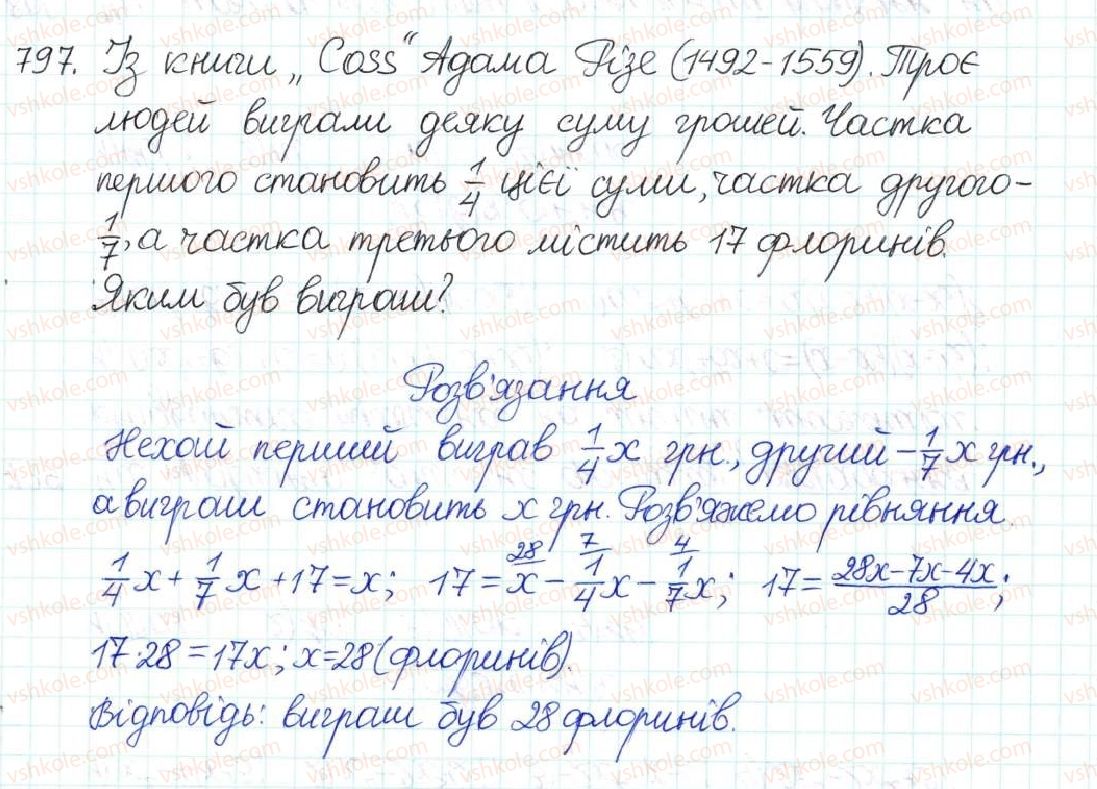 797. Із книги „Coss“ Адама Різе (1492-1559). Троє
людей виграли деяку суму грошей. Частка
першого становить 1/4 цієї суми, частка другого-
1/7, а частка третього містить 17 флоринів.
Яким був виграш?
Розв'язання
Нехай перший виграв 1/4 x грн., другий – 1/7 x грн.,
а виграш становить x грн. Розв'яжемо рівняння.
1/4 x + 1/7 x + 17 = x; 17 = 28/x - 7/1/4 x - 4/1/7 x; 17 = (28x-7x-4x)/28;
17·28 = 17x; x=28 (флоринів).
Відповідь: виграш був 28 флоринів.